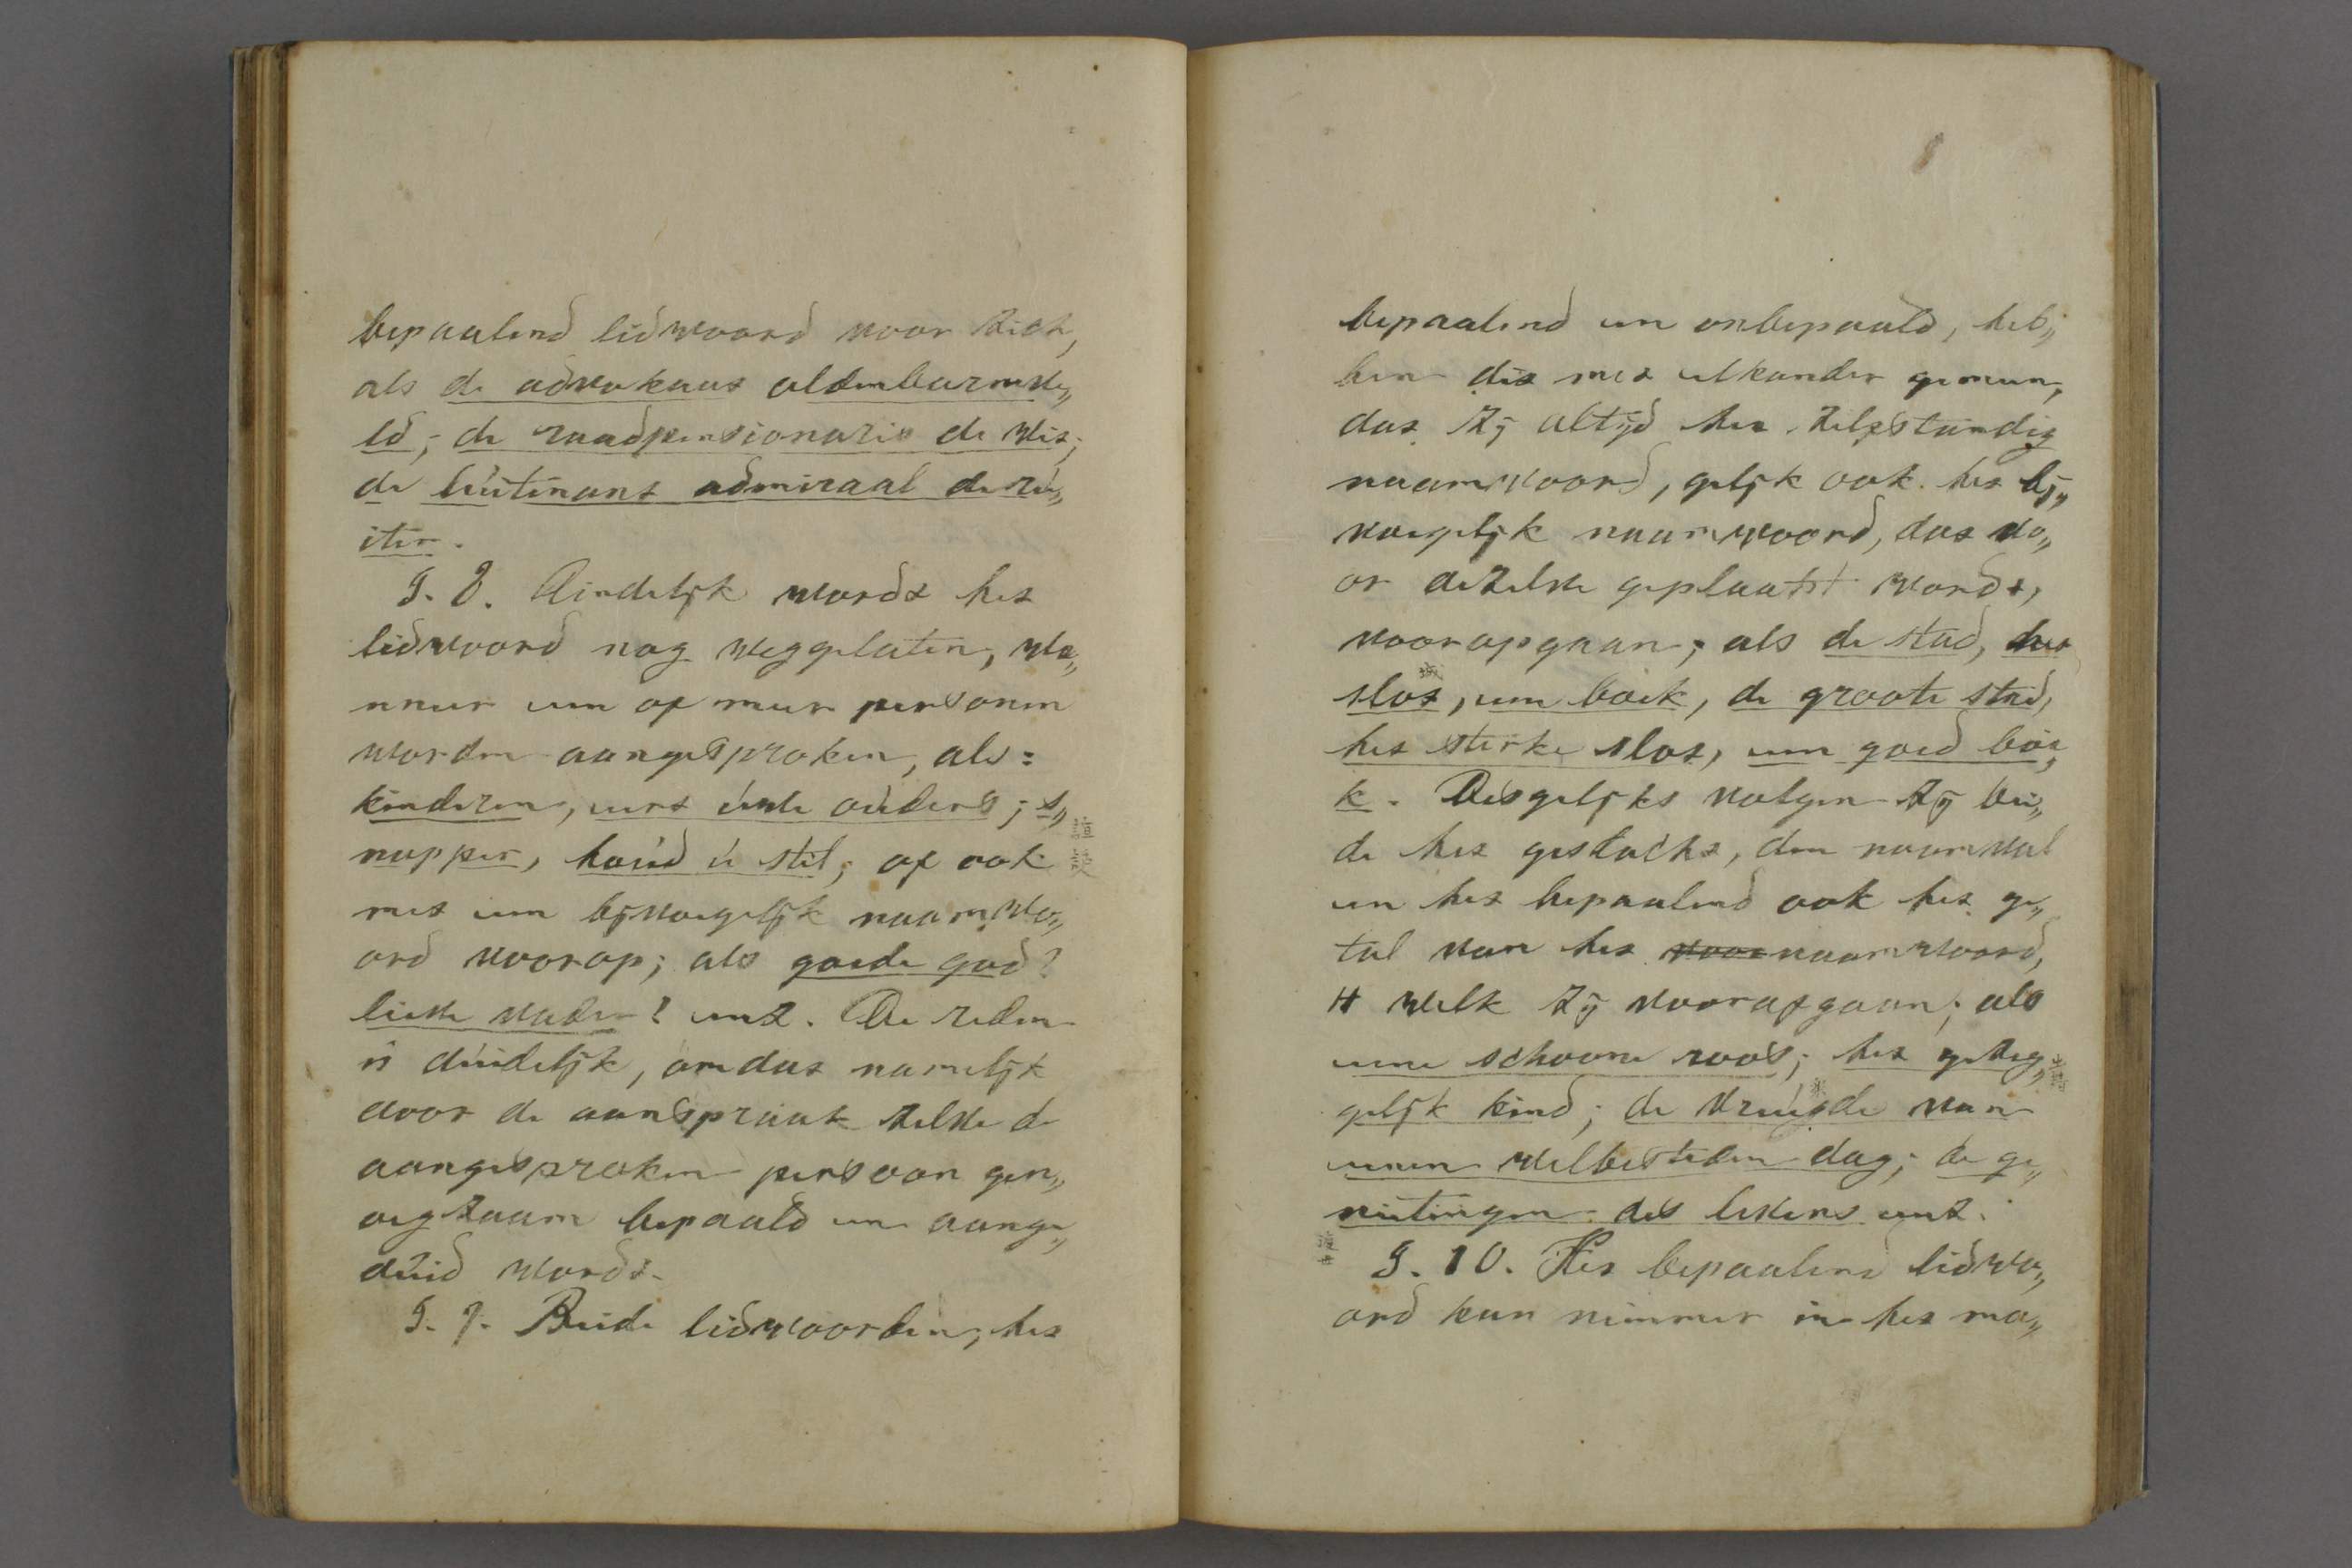 bepaalend lidwoord voor zich,
als de advokaat oldenbarneve„
ld; de raadpensionaris de wit;
de luitenant admiraal de ru„
iter.
§. 8. Eindelijk wordt het
lidwoord nog weggelaten, wa„
nneer een of meer personen
worden aangesproken, als:
kinderen, eert uwe ouders; s„
napper, houd u stil; of ook
met een bijvoegelijk naamwo„
ord voorop; als goede god!
lieve vader! enz. De reden
is duidelijk, omdat namelijk
door de aanspraak zelve de
aangesproken persoon gen„
oegzaam bepaald en aange„
duid wordt.
§. 9. Beide lidwoorden, het
bepaalend en onbepaald, heb„
ben dit met elkander gemeen,
dat zij altijd het zelfstandig
naamwoord, gelijk ook het bij„
voegelijk naamwoord, dat vo„
or dezelve geplaatst wordt,
vooropgaan; als de stad, het
slot, een boek, de groote stad,
het sterke slot, een goed boe„
k. Desgelijks volgen zij bei„
de het geslacht, den naamval
en het bepaalend ook het ge„
tal van het voornaamwoord,
't welk zij voorafgaan; als
eene schoone roos; het gezeg„
gelijk kind; de vreugde van
eenen welbesteden dag; de ge„
nietingen des levens enz.
§. 10. Het bepaalend lidwo„
ord kan nimmer in het ma„